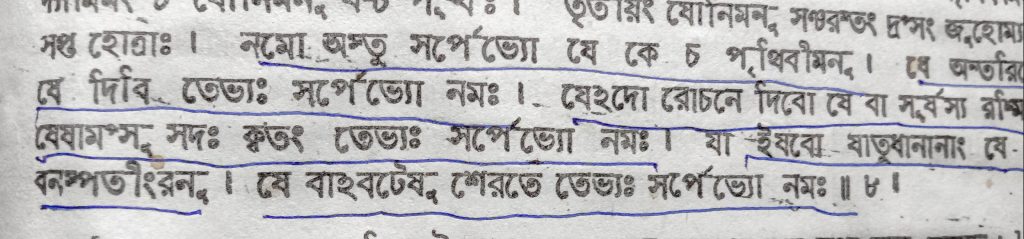 তৃতীয়ং যোনিমনু সঞ্চরন্তং দ্রপ্সং জুহোম্য
সপ্ত হোত্রাঃ । নমো অস্তু সর্পেভ্যো যে কে চ পৃথিবীমনু । যে অন্তরি
যে দিবি তেভ্যঃ সর্পেভ্যো নমঃ । যেঽদো রোচনে দিবো যে বা সূর্যস্য রশ্মি
যেষামপ্সু সদঃ কৃতং তেভ্যঃ সর্পেভ্যো নমঃ । যা ইষবো যাতুধানানাং যে
বনস্পতীংরনু । যে বাঽবটেষু শেরতে তেভ্যঃ সর্পেভ্যো নমঃ ॥ ৮ ।